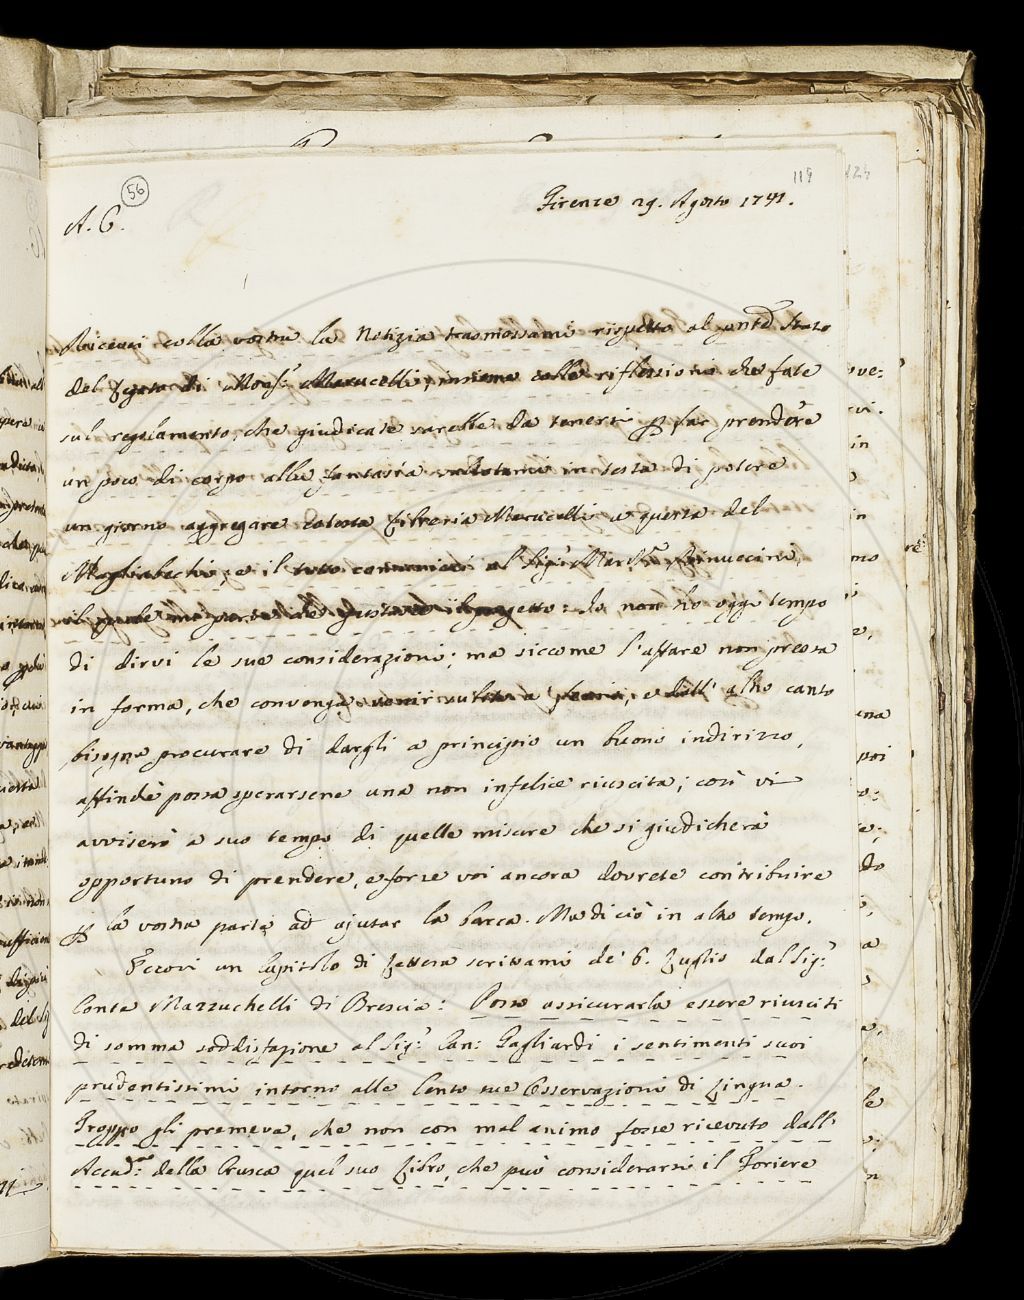 56
119
124
A. C.
Firenze 29. Agosto 1741.
Ricevei colla vostra la Notizia trasmessami rispetto al stato
del di Mons.r Marucelli, insieme colle riflessioni che fate
sul regolamento, che giudicate sarebbe da tenersi far prendere
un poco di corpo alla fantasia in testa di potere
un giorno aggregare cotesta Libreria Marucelli a questa del
Magliabechi, e il tutto al Sig.r
il quale : Io non ho oggi tempo
di dirvi le sue considerazioni; ma siccome l'affare non pressa
in forma, che convenga venir subito a , e dall' altro canto
bisogna procurare di dargli a principio un buono indirizzo,
affinchè possa sperarsene una non infelice riuscita; così vi
avviserò a suo tempo di quelle misure che si giudicherà
opportuno di prendere, e forse voi ancora dovrete contribuire
la vostra parte ad ajutar la barca. Ma di ciò in altro tempo.
Eccovi un Capitolo di Lettera scrittami de' 6. Luglio dal Sig.r
Conte Mazzuchelli di Brescia: Posso assicurarla essere riusciti
di somma soddisfazione al Sig.r Can: Gagliardi i sentimenti suoi
prudentissimi intorno alle Cento sue Osservazioni di Lingua.
Troppo gli premeva, che non con mal animo fosse ricevuto dall'
Accad.a della Crusca quel suo Libro, che può considerarsi il Foriere